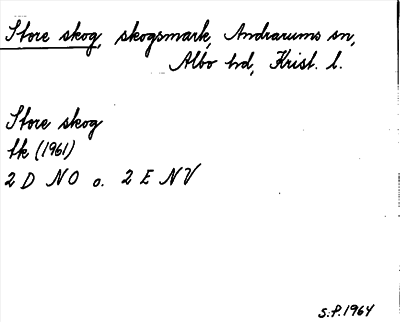 Store skog, skogsmark, Andrarums sn,
Albo hd, Krist. l.
Store skog
tk (1961)
2 D NO o. 2 E NV
S.P. 1964